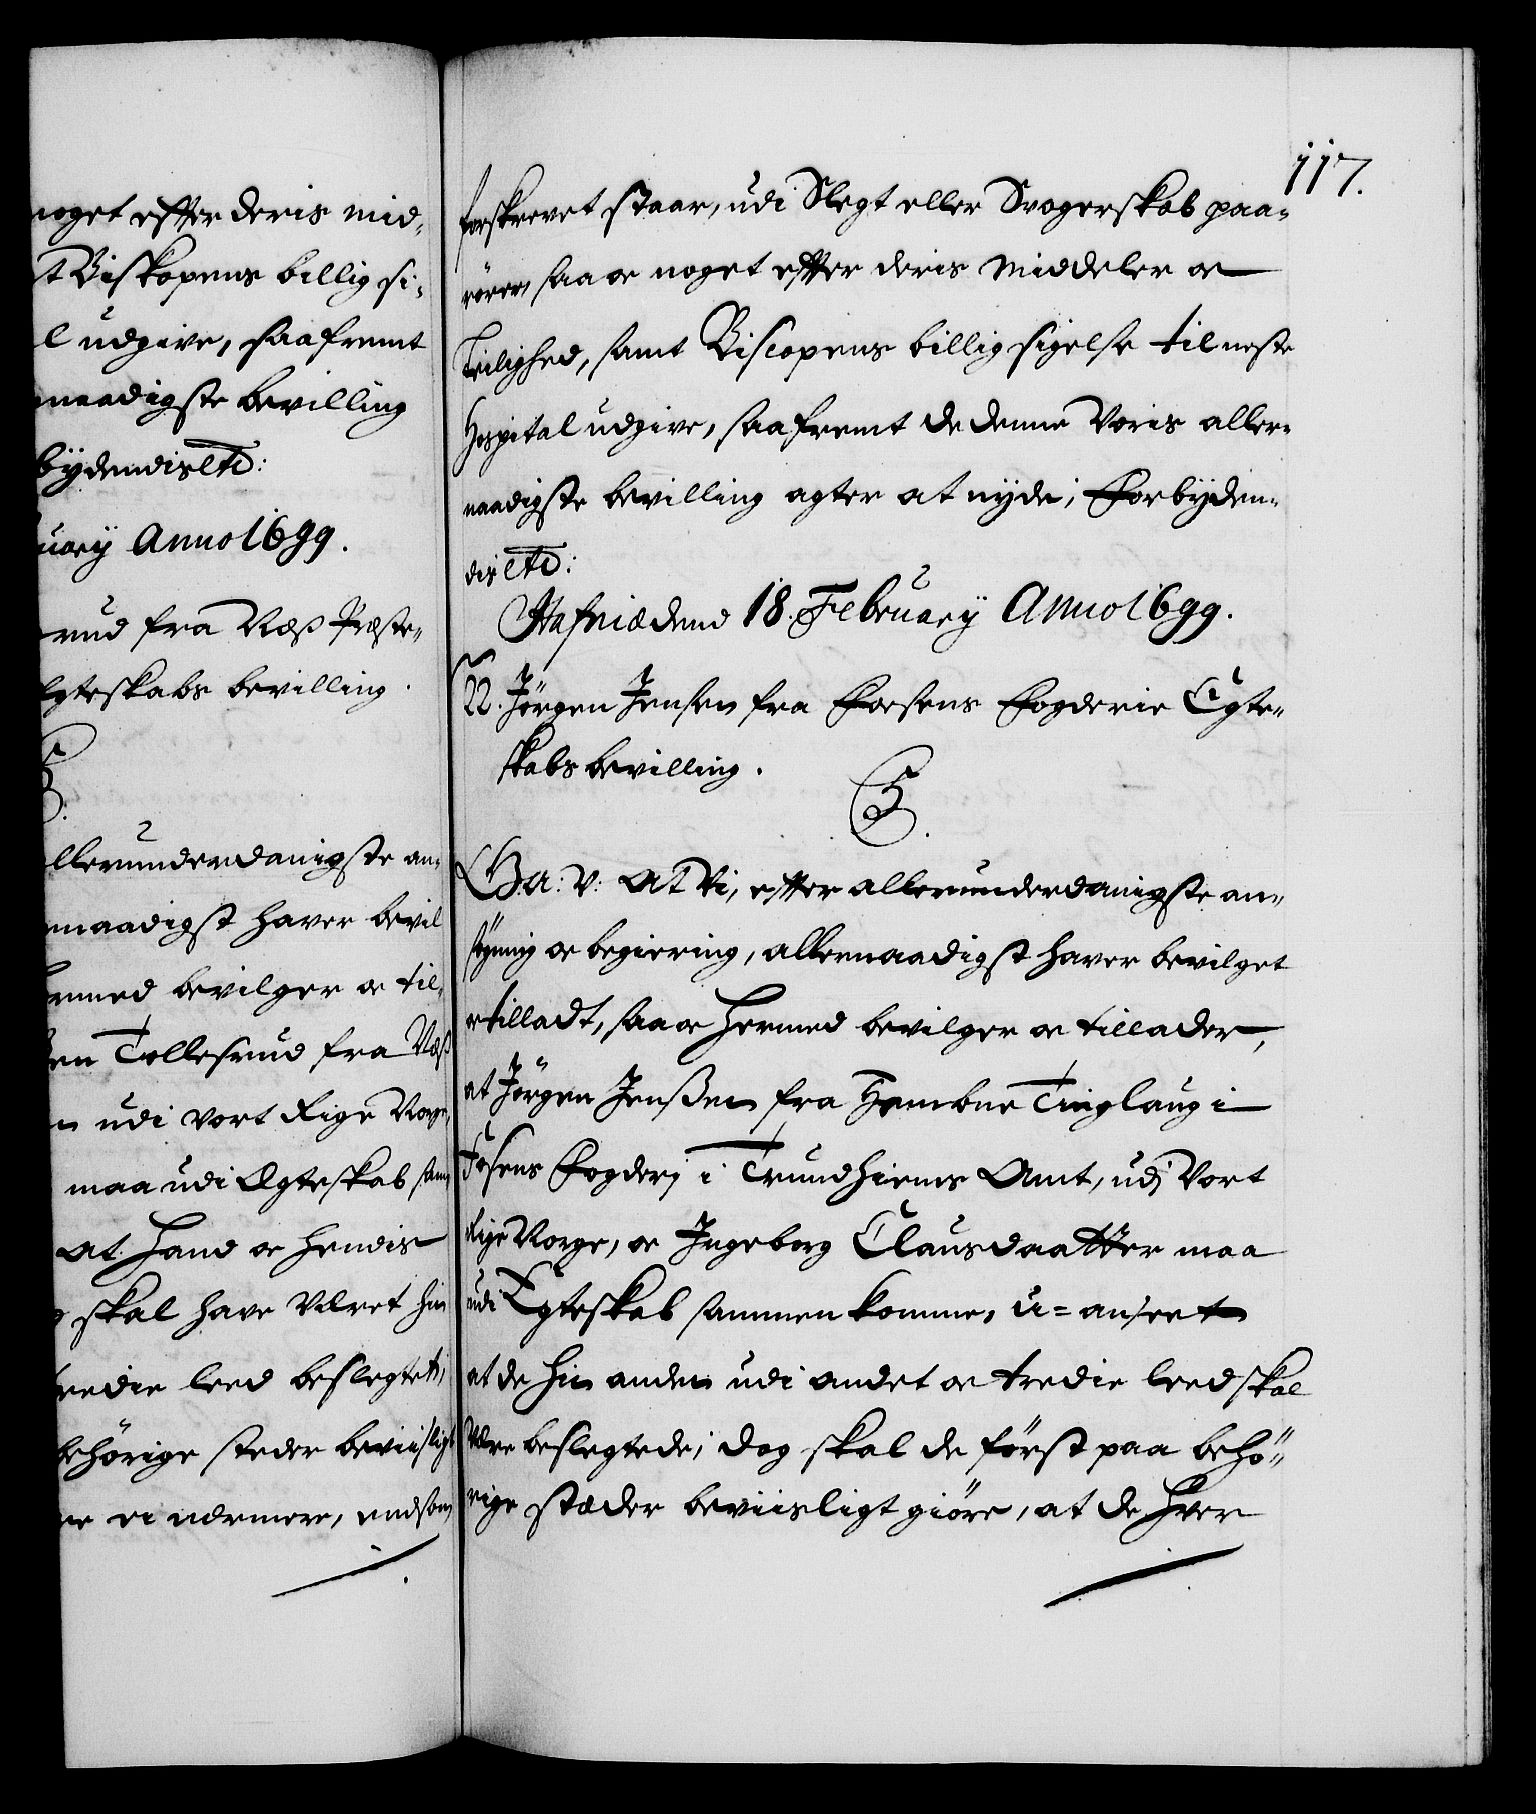 noget effter deris mid-
Biskopens billig si-
udgive, saafremt
naadigste bevilling
bÿdendis etc:
uarÿ Anno 1699.
rud fra Næs Præste-
Egteskabs bevilling.
G.
allerunderdanigste an-
naadigst haver bevil
hermed bevilger oc til-
Tollesrud fra Næs
udi vort Rige Norge,
maa udi Egteskab sam
at hand oc hendis
skal have Været hin
tredie leed beslegtet,
behörige steder beviisligt
ei nærmere, end som
117.
forskrevet staar, udi Slegt eller Svogerskab paa-
rörer, saa oc noget effter deris Middeler oc
Leilighed, samt Biscopens billig sigelse til neste
Hospital udgive, saafremt de denne Voris aller-
naadigste bevilling agter at nÿde; Forbÿden-
dis etc:
Hafniæ dend 18. Februarÿ Anno 1699.
22. Jörgen Jensen fra Foesens Fogderie Egte-
skabs bevilling.
G.
G. A: V: At Vi, effter allerunderdanigste an-
sögning oc begiering, allernaadigst haver bevilget
oc tilladt, saa oc hermed bevilger oc tillader,
at Jörgen Jenßen fra Hembne Tinglaug i
Fosens Fogderj i Trundhiems Amt, udj Vort
Rige Norge, oc Ingeborg Clausdaatter maa
udi Egteskab sammen komme, u=anseet
at de hin anden udi andet oc tredie leed skal
Være beslegtede; dog skal de först paa behö-
rige stæder beviisligt giöre, at de hver